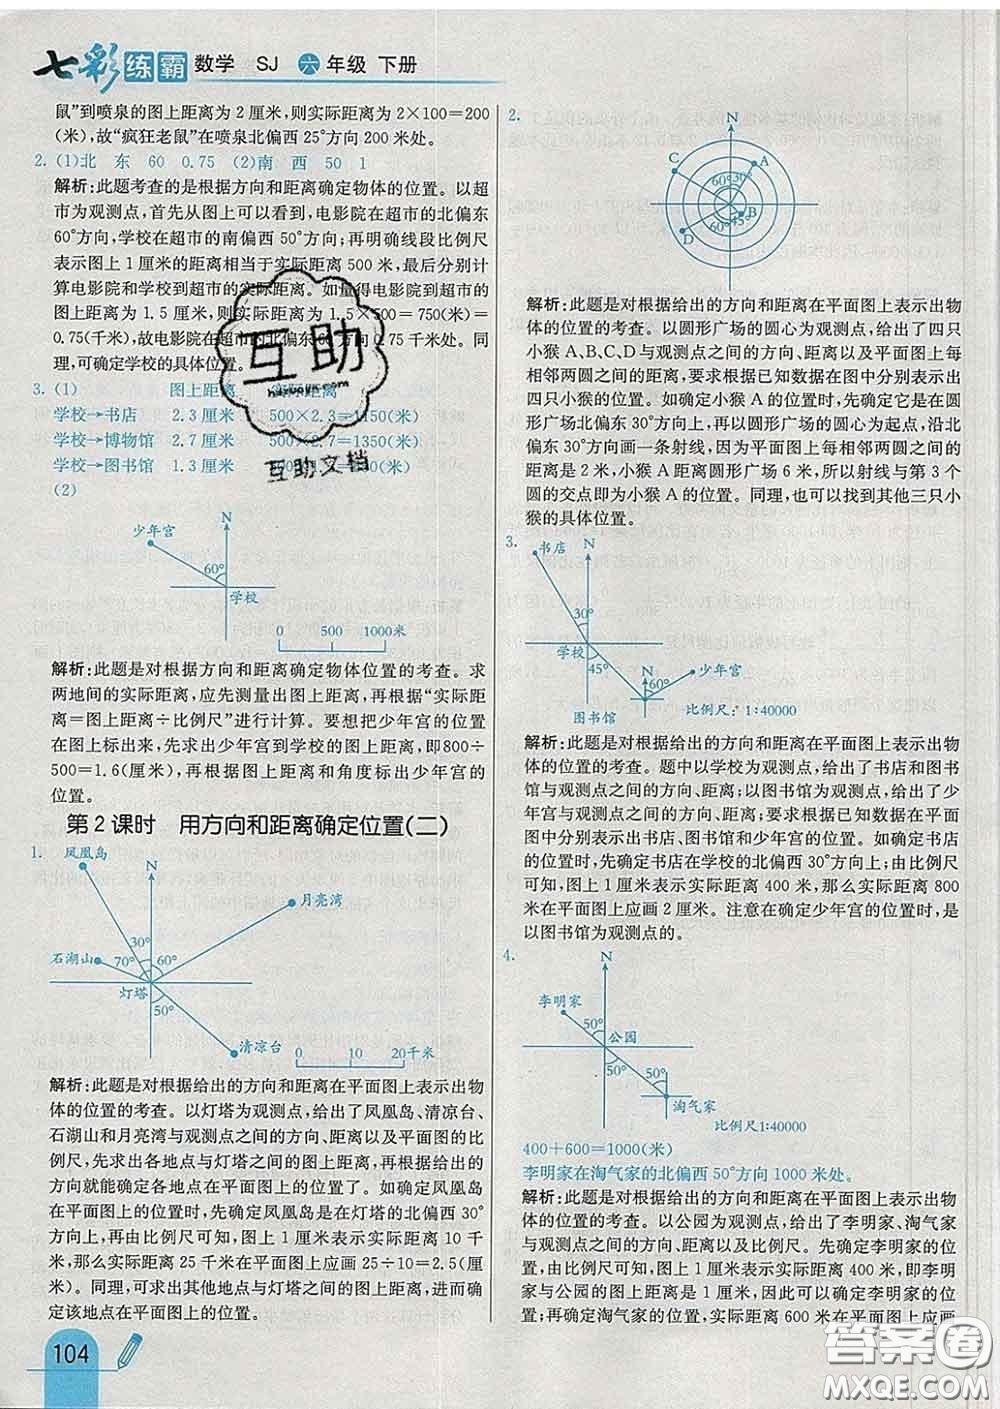 七彩练霸 数学 SJ 六年级 下册
鼠”到喷泉的图上距离为2厘米,则实际距离为2×100=200
(米),故“疯狂老鼠”在喷泉北偏西25°方向200米处。
2. (1)北 东 60 0.75 (2)南 西 50 1
解析:此题考查的是根据方向和距离确定物体的位置。以超
市为观测点,首先从图上可以看到,电影院在超市的北偏东
60°方向,学校在超市的南偏西50°方向;再明确线段比例尺
表示图上1厘米的距离相当于实际距离500米,最后分别计
算电影院和学校到超市的实际距离。如量得电影院到超市的
图上距离为1.5厘米,则实际距离为1.5×500=750(米)=
0.75(千米),故电影院在超市的北偏东60°方向0.75千米处。同
理,可确定学校的具体位置。
3. (1) 图上距离 实际距离
学校→书店 2.3厘米 500×2.3=1150(米)
学校→博物馆 2.7厘米 500×2.7=1350(米)
学校→图书馆 1.3厘米
(2)
互助
互助文档
N
少年宫
60°
学校
0 500 1000米
解析:此题是对根据方向和距离确定物体位置的考查。求
两地间的实际距离,应先测量出图上距离,再根据“实际距
离=图上距离÷比例尺”进行计算。要想把少年宫的位置
在图上标出来,先求出少年宫到学校的图上距离,即800÷
500=1.6(厘米),再根据图上距离和角度标出少年宫的
位置。
第2课时 用方向和距离确定位置(二)
1.
凤凰岛
N
月亮湾
30°
石湖山 70° 60°
灯塔
50°
清凉台
0 10 20千米
解析:此题是对根据给出的方向和距离在平面图上表示出物
体的位置的考查。以灯塔为观测点,给出了凤凰岛、清凉台、
石湖山和月亮湾与观测点之间的方向、距离以及平面图的比
例尺,先求出各地点与灯塔之间的图上距离,然后再根据方
向就能确定各地点在平面图上的位置了。如确定凤凰岛
在平面图上的位置时,先确定凤凰岛是在灯塔的北偏西30°
方向上,再由比例尺可知,图上1厘米表示实际距离10千
米,那么实际距离25千米在平面图上应画25÷10=2.5(厘
米)。同理,可求出其他地点与灯塔之间的图上距离,进而确
定该地点在平面图上的位置。
104
2.
N
C
A
60° 30°
B
45°
60°
D
解析:此题是对根据给出的方向和距离在平面图上表示出物
体的位置的考查。以圆形广场的圆心为观测点,给出了四只
小猴A、B、C、D与观测点之间的方向、距离以及平面图上每
相邻两圆之间的距离,要求根据已知数据在图中分别表示出
四只小猴的位置。如确定小猴A的位置时,先确定它是在圆
形广场的北偏东30°方向上,再以圆形广场的圆心为起点,沿北
偏东30°方向画一条射线,因为平面图上每相邻两圆之间的
距离是2米,小猴A距离圆形广场6米,所以射线与第3个
圆的交点即为小猴A的位置。同理,也可以找到其他三只小
猴的具体位置。
3.
书店
N
30°
学校
45°
N
少年宫
60°
图书馆
比例尺:1:40000
解析:此题是对根据给出的方向和距离在平面图上表示出物
体的位置的考查。题中以学校为观测点,给出了书店和图书
馆与观测点之间的方向、距离;以图书馆为观测点,给出了少
年宫与观测点之间的方向、距离;要求根据已知数据在平面
图中分别表示出书店、图书馆和少年宫的位置。如确定书店
的位置时,先确定书店在学校的北偏西30°方向上;由比例尺
可知,图上1厘米表示实际距离400米,那么实际距离800
米在平面图上应画2厘米。注意在确定少年宫的位置时,是
以图书馆为观测点的。
4.
N
李明家
50°
公园
50°
50°
淘气家
比例尺1:40000
400+600=1000(米)
李明家在淘气家的北偏西50°方向1000米处。
解析:此题是对根据给出的方向和距离在平面图上表示出物
体的位置的考查。以公园为观测点,给出了李明家、淘气家
与观测点之间的方向、距离及比例尺。先确定李明家的位
置,由比例尺可知,图上1厘米表示实际距离400米,即李明
家与公园在平面图上的距离为1厘米,因此可以确定李明家的
位置;再确定淘气家的位置,实际距离600米在平面图上应画
答案圈
MXQE.COM